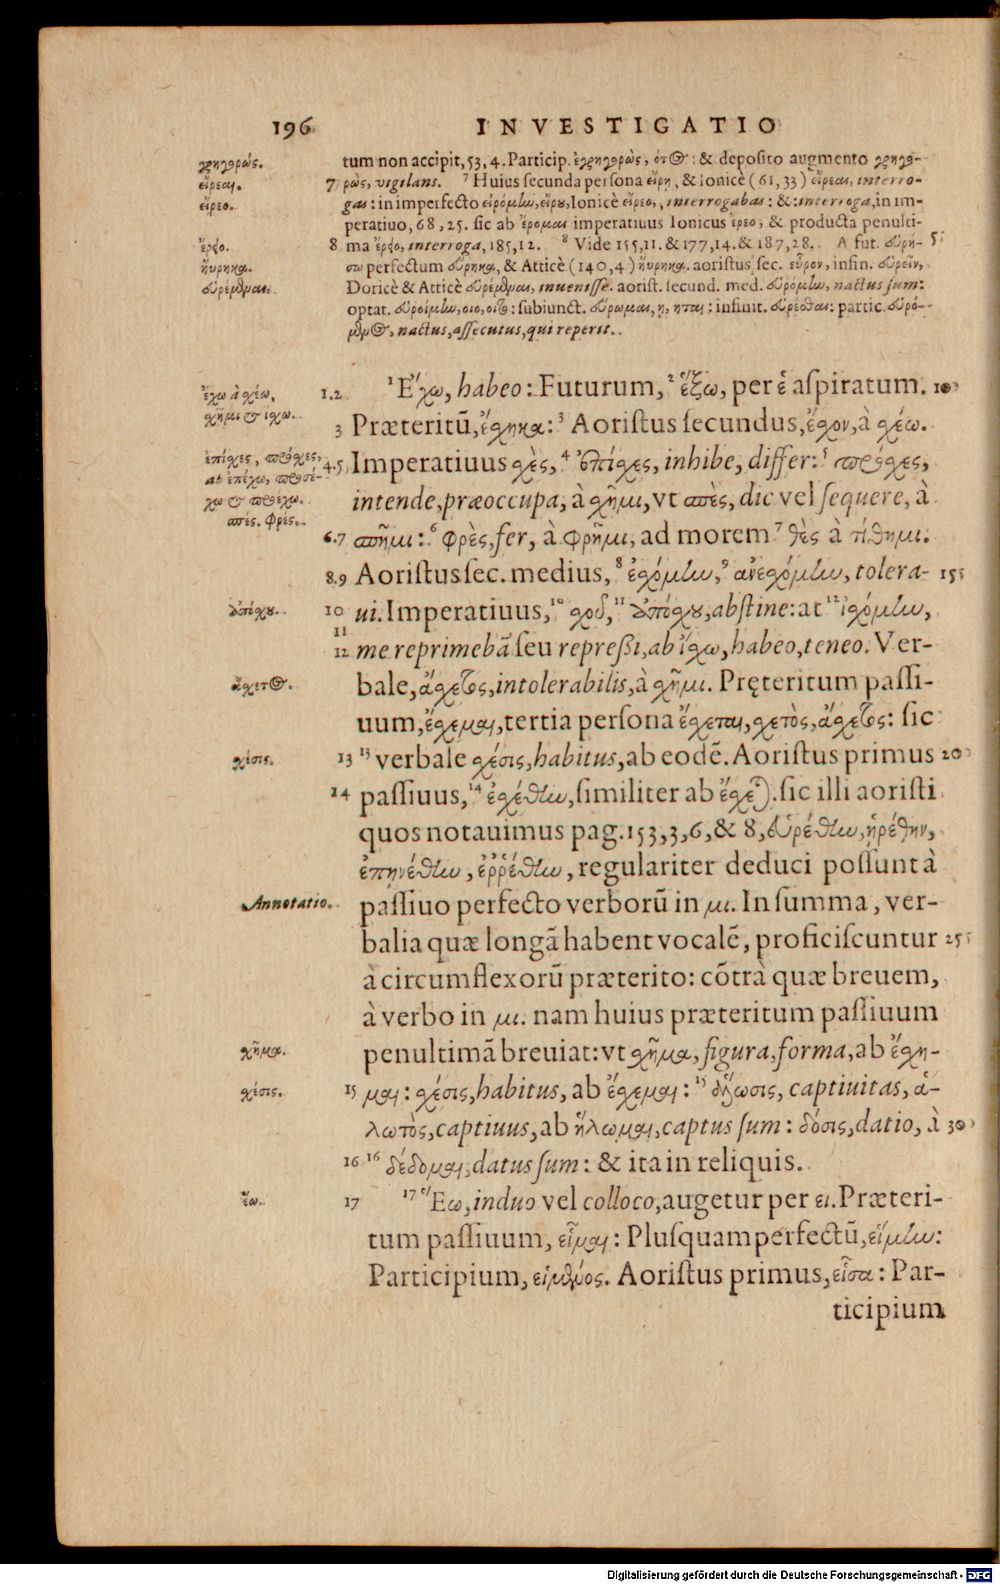 196 INVESTIGATIO
γρηγορώς. tum non accipit, 53, 4. Particip. ἐγρηγορὼς, ότος: & deposito augmento γρηγο-
εἴρεαι. 7 ρὼς, vigilans. 7 Huius secunda persona εἴρῃ, & Ionicè (61, 33) εἴρεαι, interro-
εἴρεο. gas: in imperfecto εἰρόμην, εἴρου, Ionicè εἴρεο, interrogabas: & interroga, in im-
peratiuo, 68, 25. sic ab ἔρομαι imperatiuus Ionicus ἔρεο, & producta penulti-
8 ma interroga, 185, 12. 8 Vide 155, 11. & 177, 14. & 187, 28. A fut. εὑρή- 5
ηὕρηκα. σω perfectum εὕρηκα, & Atticè (140, 4) ηὕρηκα. aoristus sec. εὗρον, infin. εὑρεῖν,
εὑρέμεναι. Doricè & Atticè εὑρέμεναι, inuenisse. aorist. secund. med. εὑρόμην, nactus sum:
optat. εὑροίμην, οιο, οιτο: subiunct. εὕρωμαι, ῃ, ηται: infinit. εὑρέσθαι: partic. εὑρό-
μενος, nactus, assecutus, qui reperit.
ἔχω à σχέω, 1.2 1 Ἔχω, habeo: Futurum, 2 ἕξω, per ἑ aspiratum. 10
σχῆμι & ἴσχω. 3 Præteritū, ἔσχηκα: 3 Aoristus secundus, ἔσχον, à σχέω.
ἐπίσχες, πρόσχες, 4.5 Imperatiuus σχὲς, 4 ἐπίσχες, inhibe, differ: 5 πρόσχες,
ab ἐπέχω, προσέ- intende, præoccupa, à σχῆμι, vt σπὲς, dic vel sequere, à
χω & προέχω.
σπές. φρές. 6.7 σπῆμι: 6 φρὲς, fer, à φρῆμι, ad morem 7 θὲς à τίθημι.
8.9 Aoristus sec. medius, 8 ἐσχόμην, 9 ἀνεσχόμην, tolera- 15
ἀπόσχου. 10 ui. Imperatiuus, 10 σχοῦ, 11 ἀπόσχου, abstine: at 12 ἰσχόμην,
11
12 me reprimebā seu repressi, ab ἴσχω, habeo, teneo. Ver-
ἄσχετος. bale, ἄσχετος, intolerabilis, à σχῆμι. Pręteritum passi-
uum, ἔσχεμαι, tertia persona ἔσχεται, σχετὸς, ἄσχετος: sic
σχέσις. 13 13 verbale σχέσις, habitus, ab eodē. Aoristus primus 20
14 passiuus, 14 ἐσχέθην, similiter ab ἔσχεται. sic illi aoristi
quos notauimus pag. 153, 3, 6, & 8, εὑρέθην, ᾑρέθην,
ἐπῃνέθην, ἐῤῥέθην, regulariter deduci possunt à
Annotatio. passiuo perfecto verborū in μι. In summa, ver-
balia quæ longā habent vocalē, proficiscuntur 25
à circumflexorū præterito: cōtrà quæ breuem,
à verbo in μι. nam huius præteritum passiuum
σχῆμα. penultimā breuiat: vt σχῆμα, figura, forma, ab ἔσχη-
σχέσις. 15 μαι: σχέσις, habitus, ab ἔσχεμαι: 15 captiuitas, ἁ-
λωτὸς, captiuus, ab ἥλωμαι, captus sum: δόσις, datio, à 30
16 16 δέδομαι, datus sum: & ita in reliquis.
ἕω. 17 17 Ἕω, induo vel colloco, augetur per ει. Præteri-
tum passiuum, εἷμαι: Plusquamperfectū, εἵμην:
Participium, εἱμένος. Aoristus primus, εἷσα: Par-
ticipium
Digitalisierung gefördert durch die Deutsche Forschungsgemeinschaft - DFG